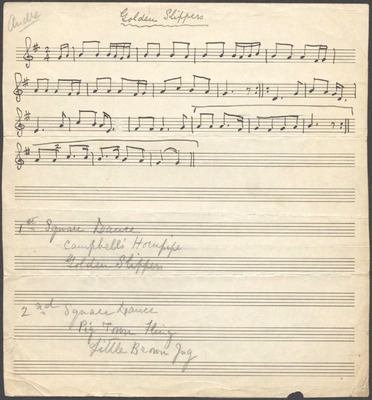 Andre
Golden Slippers
1st Square Dance
Campbell's Hornpipe
Golden Slippers
2nd Square Dance
Pig Town Fling
Little Brown Jug